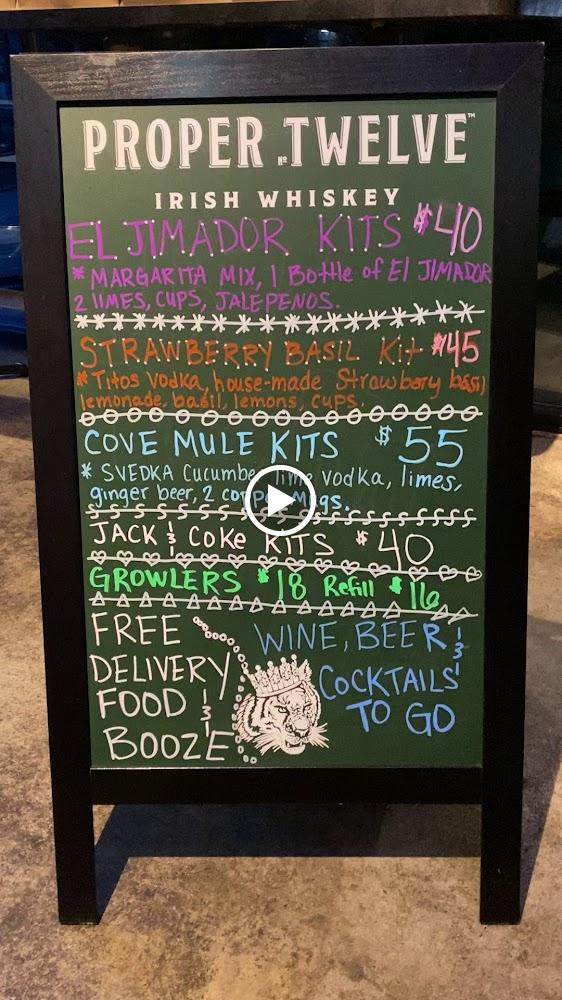 PROPER No. TWELVE™
IRISH WHISKEY
EL JIMADOR KITS $40
* MARGARITA MIX, 1 Bottle of El JIMADOR
2 lIMES, CUPS, JALEPENOS.
STRAWBERRY BASIL Kit $45
* Titos Vodka, house-made Strawbery basil
lemonade, basil, lemons, cups.
COVE MULE KITS $55
* SVEDKA Cucumber lime vodka, limes,
ginger beer, 2 copper Mugs.
JACK & COKE KITS $40
GROWLERS $18 Refill $16
FREE
DELIVERY
FOOD &
BOOZE
WINE, BEER &
COCKTAILS
TO GO